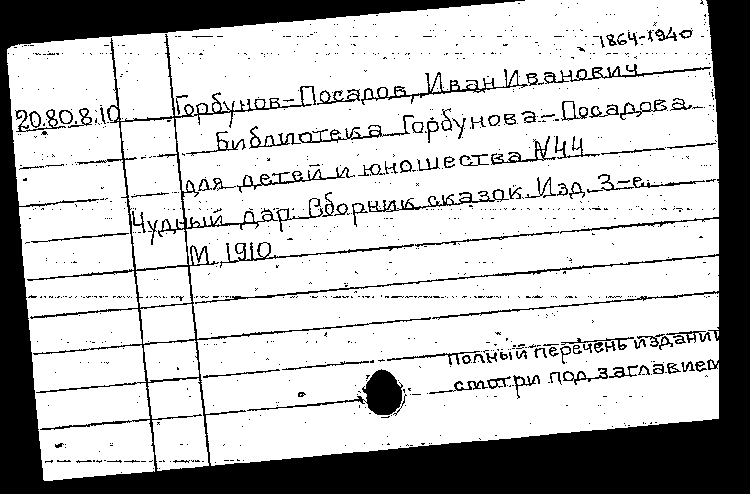 1864-1940
20.80.8.10 Горбунов-Посадов, Иван Иванович
Библиотека Горбунова-Посадова
для детей и юношества №44
Чудный дар. Сборник сказок. Изд. 3-е.
М., 1910.
Полный перечень изданий
смотри под заглавием